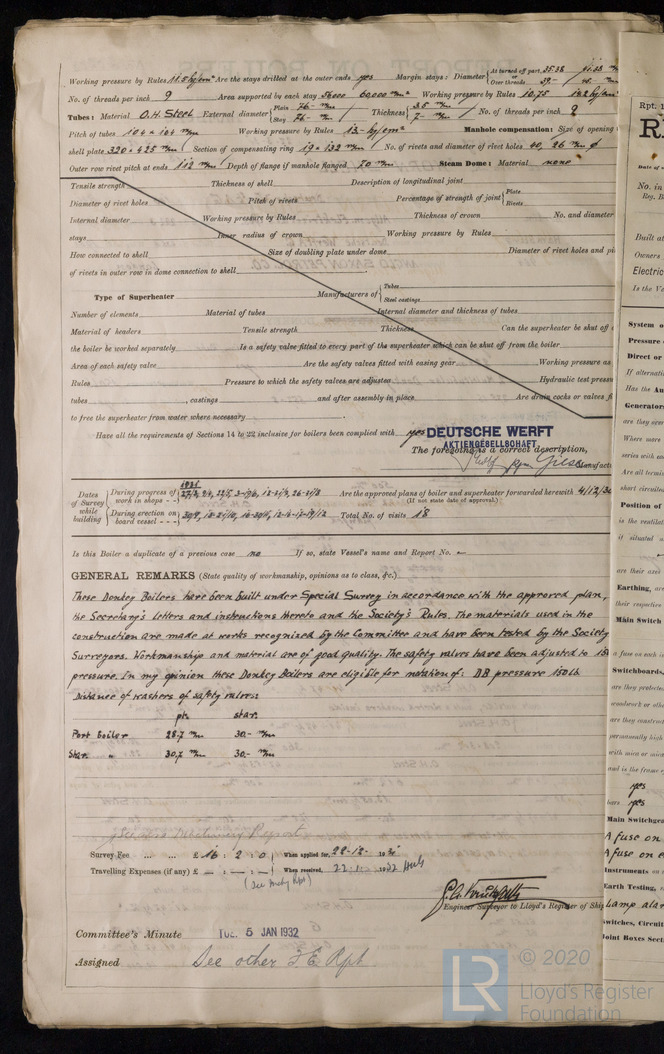 Working pressure by Rules 11.5 kg/cm² Are the stays drilled at the outer ends yes Margin stays: Diameter { At turned off part, or Over threads
No. of threads per inch 9 Area supported by each stay Working pressure by Rules 10.75
Tubes: Material O.H. Steel External diameter { Plain 76 m/m Stay 76 m/m Thickness { 3.5 m/m 7 m/m No. of threads per inch 9
Pitch of tubes 104 × 104 m/m Working pressure by Rules 13 kg/cm² Manhole compensation: Size of opening
shell plate 320 × 425 m/m Section of compensating ring 19 × 132 m/m No. of rivets and diameter of rivet holes 40, 26 m/m ø
Outer row rivet pitch at ends 112 m/m Depth of flange if manhole flanged 70 m/m Steam Dome: Material none
Tensile strength Thickness of shell Description of longitudinal joint
Diameter of rivet holes Pitch of rivets Percentage of strength of joint { Plate Rivets
Internal diameter Working pressure by Rules Thickness of crown No. and diameter
stays Inner radius of crown Working pressure by Rules
How connected to shell Size of doubling plate under dome Diameter of rivet holes and pi
of rivets in outer row in dome connection to shell
Type of Superheater Manufacturers of { Tubes Steel castings
Number of elements Material of tubes Internal diameter and thickness of tubes
Material of headers Tensile strength Thickness Can the superheater be shut off
the boiler be worked separately Is a safety valve fitted to every part of the superheater which can be shut off from the boiler
Area of each safety valve Are the safety valves fitted with easing gear Working pressure as
Rules Pressure to which the safety valves are adjusted Hydraulic test pressu
tubes , castings and after assembly in place Are drain cocks or valves fi
to free the superheater from water where necessary
Have all the requirements of Sections 14 to 22 inclusive for boilers been complied with yes
DEUTSCHE WERFT
AKTIENGESELLSCHAFT
The foregoing is a correct description,
Manufact
Dates of Survey while building { During progress of work in shops - - 1931
During erection on board vessel - - -
Are the approved plans of boiler and superheater forwarded herewith 4/12/30
(If not state date of approval.)
Total No. of visits 18
Is this Boiler a duplicate of a previous case no If so, state Vessel's name and Report No. –
GENERAL REMARKS (State quality of workmanship, opinions as to class, &c.)
These Donkey Boilers have been built under Special Survey in accordance with the approved plan,
the Secretary's letters and instructions thereto and the Society's Rules. The materials used in the
construction are made at works recognised by the Committee and have been tested by the Society
Surveyors. Workmanship and material are of good quality. The safety valves have been adjusted to 150
pressure. In my opinion these Donkey Boilers are eligible for notation of: DB pressure 150 lb
Distance of washers of safety valves:
pt. star.
Port Boiler 28.7 m/m 30.- m/m
Star. " 30.7 m/m 30.- m/m
See also Machinery Report
Survey Fee ... ... £ 16 : 2 : 0 When applied for, 22-12- 1931
Travelling Expenses (if any) £ — : — : — When received,
(See Mchy Rpt)
Engineer Surveyor to Lloyd's Register of Ship
Committee's Minute TUE. 5 JAN 1932
Assigned See other F.E. Rpt
Rpt.
No. in
Reg. B
Built at
Owners
Electric
Is the Ve
System o
Pressure
Direct or
If alternati
Has the Au
Generator
are they over
Where more
series with
Are all termi
short circuited
Position of
is the ventilat
if situated
are their axes
Earthing, are
their respective
Main Switch
a fuse on each
Switchboards,
are they protected
woodwork or other
are they construct
permanently high
with mica or mica
and is the frame
yes
bars yes
Main Switchgea
A fuse on
A fuse on e
Instruments on
Earth Testing,
Lamp alar
Switches, Circuit
Joint Boxes Sect
LR © 2020
Lloyd's Register
Foundation